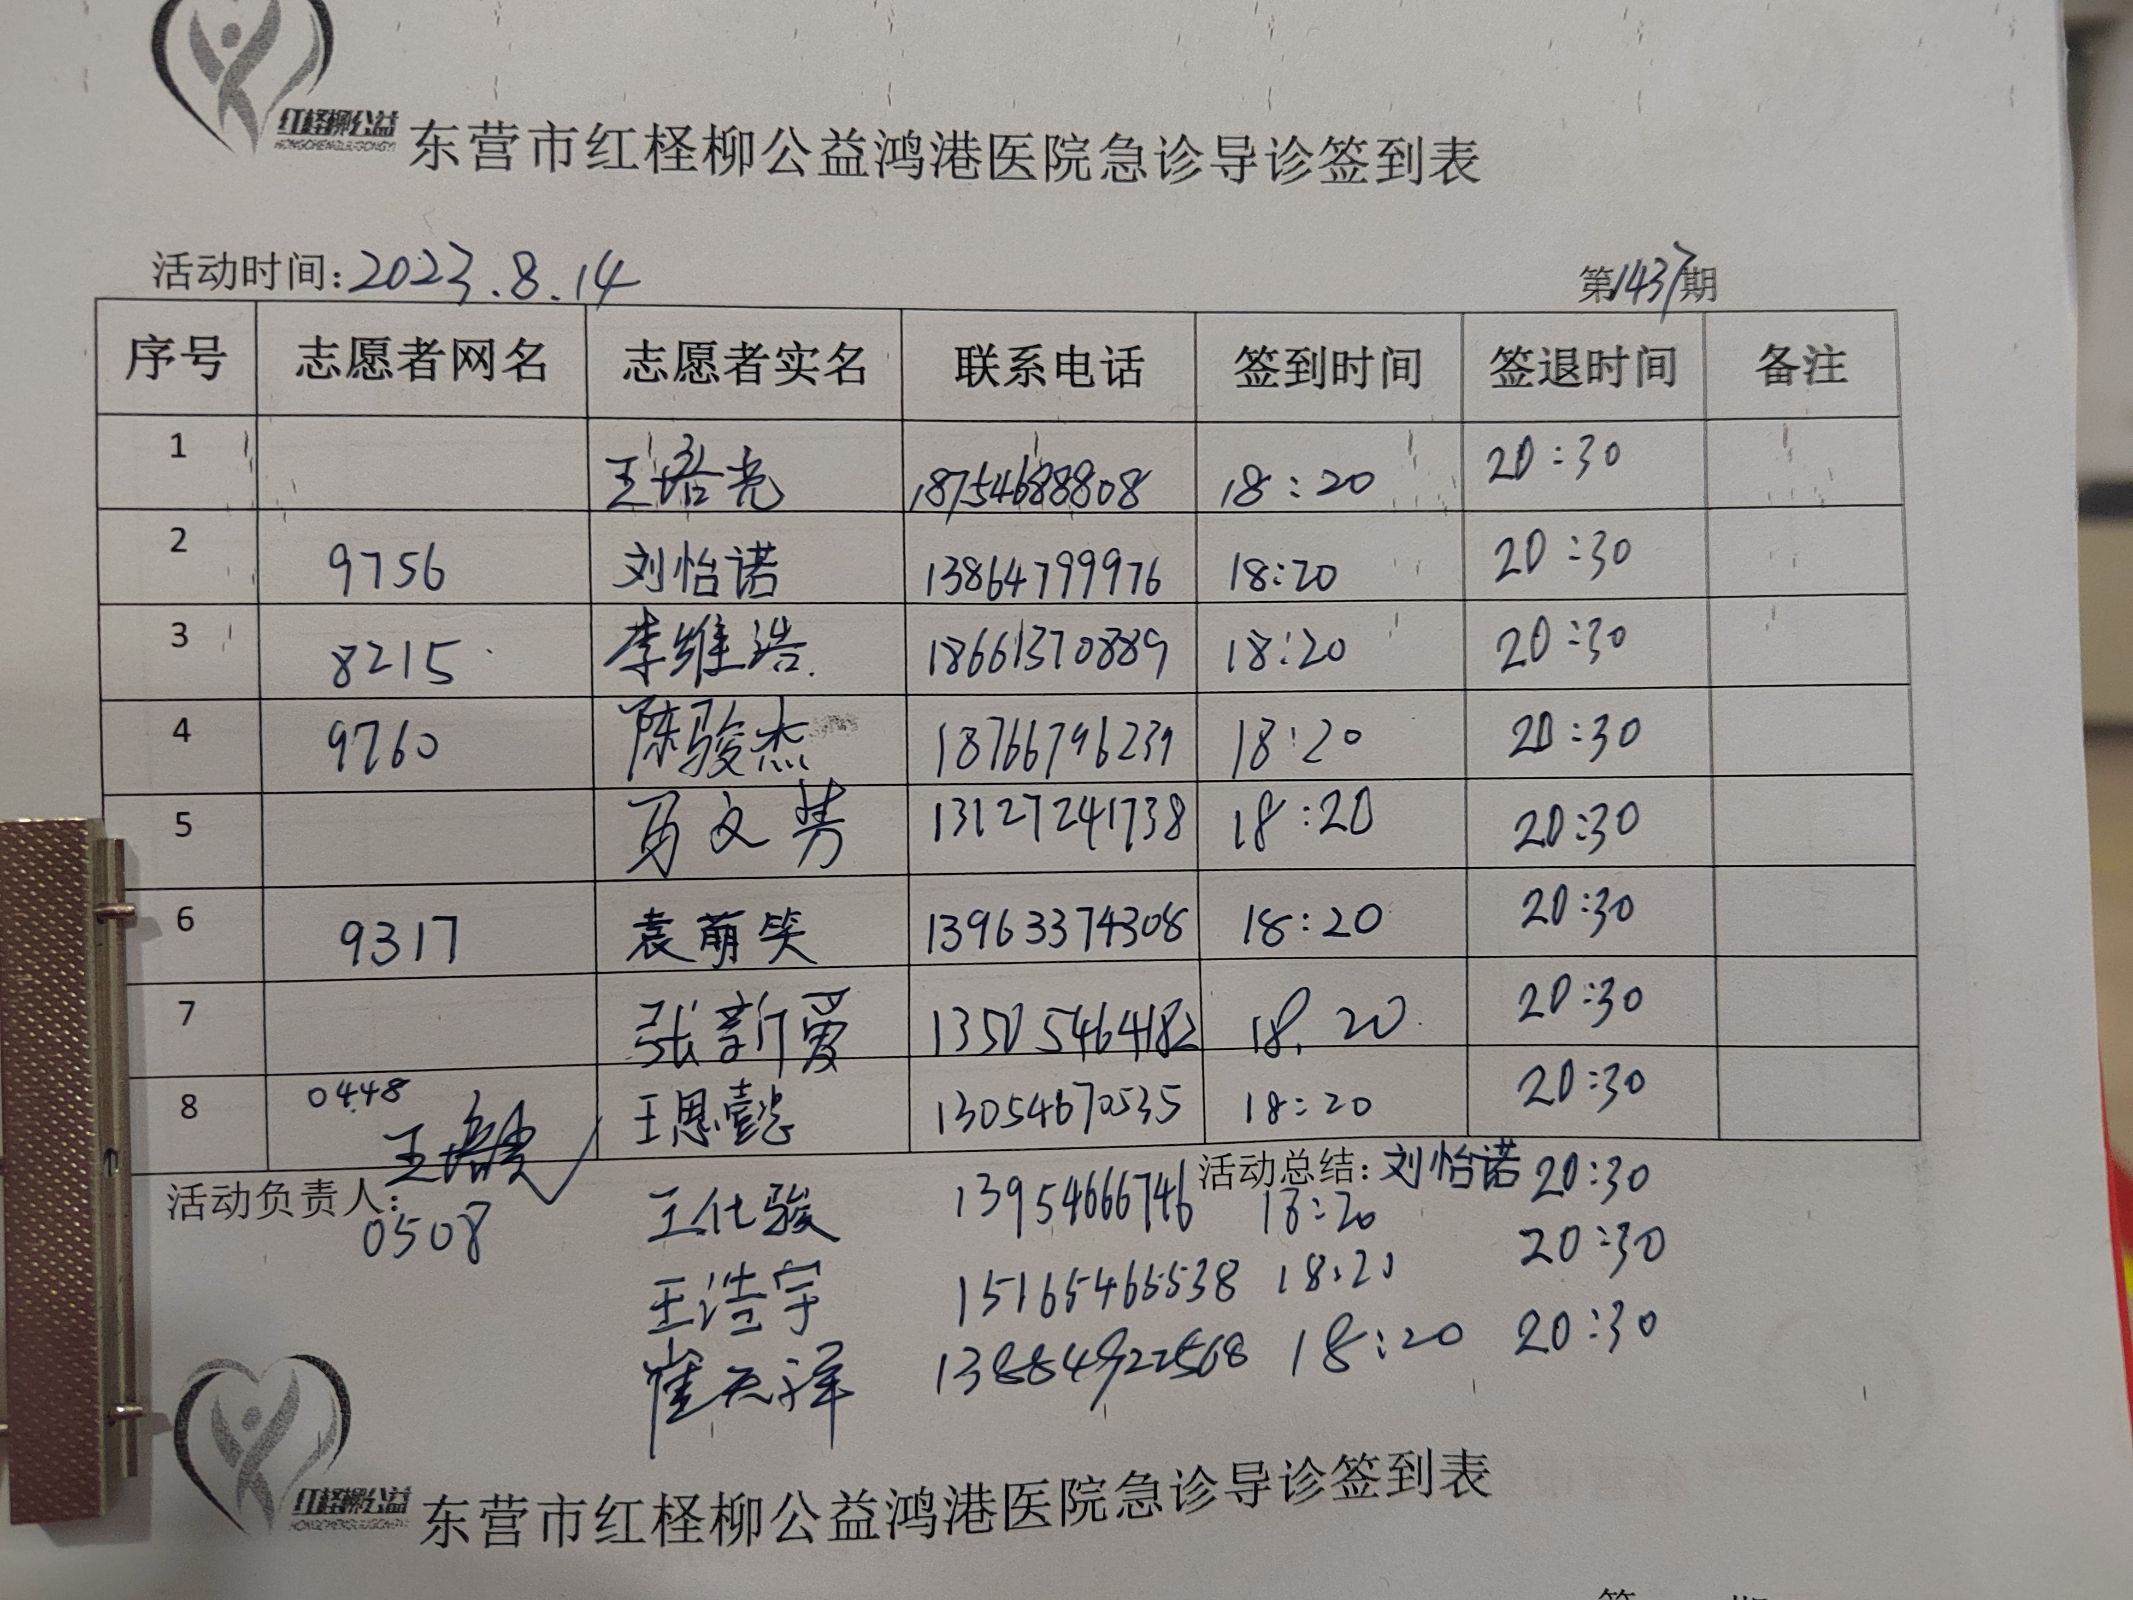 红柽柳公益
HONGCHENGLIUGONGYI
东营市红柽柳公益鸿港医院急诊导诊签到表
活动时间:2023.8.14 第1437期
序号 志愿者网名 志愿者实名 联系电话 签到时间 签退时间 备注
1 王培亮 18754688808 18:20 20:30
2 9756 刘怡诺 13864799976 18:20 20:30
3 8215 李维浩 18661370889 18:20 20:30
4 9760 陈骏杰 18766796239 18:20 20:30
5 马文芳 13127241738 18:20 20:30
6 9317 袁萌笑 13963374308 18:20 20:30
7 张新爱 13505464182 18.20 20:30
8 0448 王思懿 13054670535 18:20 20:30
活动负责人: 王培亮 活动总结: 刘怡诺 20:30
0508 王仕骏 13954666746 18:20 20:30
王浩宇 15165466538 18:20
崔天泽 13884922568 18:20 20:30
红柽柳公益
HONGCHENGLIUGONGYI
东营市红柽柳公益鸿港医院急诊导诊签到表